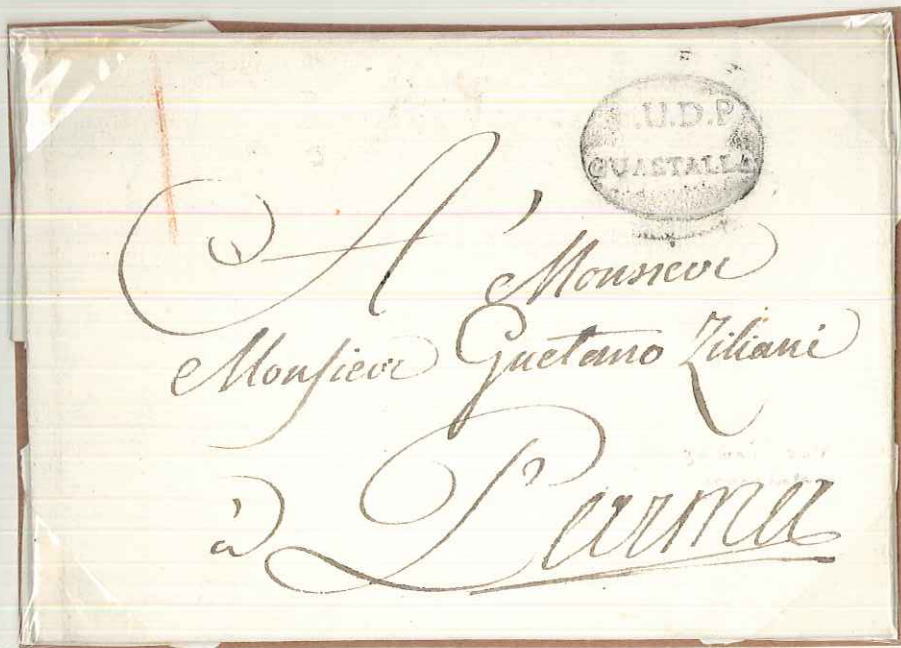 .U.D.P
GUASTALLA
A Monsieur
Monsieur Gaetano Ziliani
à Parma